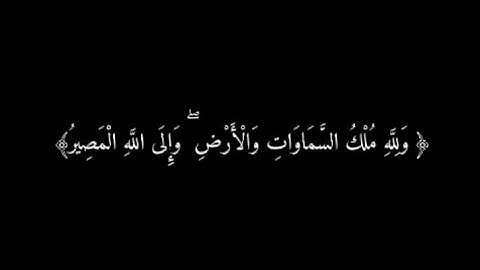 ﴿ وَلِلَّهِ مُلْكُ السَّمَاوَاتِ وَالْأَرْضِ ۖ وَإِلَى اللَّهِ الْمَصِيرُ﴾